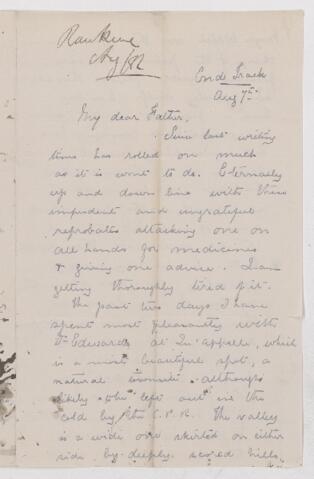 Rankine
Aug/82
End Track
Aug 7th
My dear Father,
Since last writing
time has rolled on much
as it is wont to do. Eternally
up and down line with these
impudent and ungrateful
reprobates attacking one on
all hands for medicines
& giving one advice. I am
getting thoroughly tired of it.
The past two days I have
spent most pleasantly with
Dr Edwards at Qu'appelle, which
is a most beautiful spot, a
natural townsite although
likely to be left out in the
cold by the C.P.R. The valley
is a wide one skirted on either
side by deeply scored hills